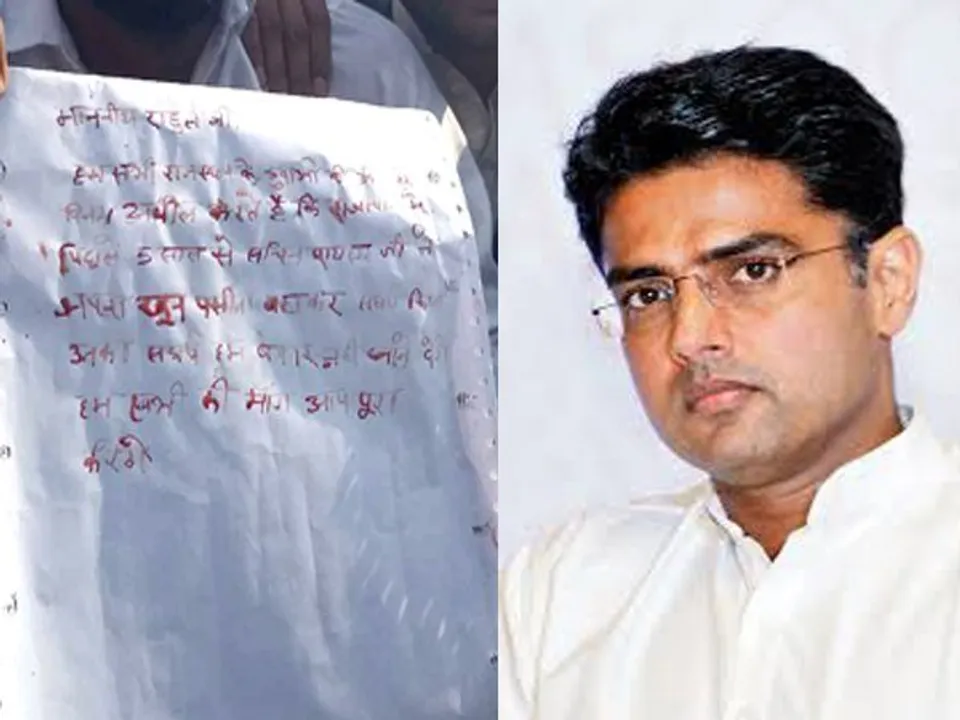 माननीय राहुल जी,
हम सभी राजस्थान के युवाओ की
विनम्र अपील करते है कि राजस्थान में
पिछले 5 साल से सचिन पायलट जी ने
अपना खून पसीना बहाकर
उनका संघर्ष हम बेकार नही जाने देंगे
हम सभी की मांग आप पूरा
करेंगे